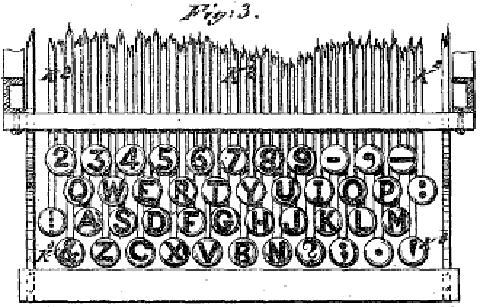 Fig. 3.
K² K² K²
2 3 4 5 6 7 8 9 - , —
Q W E R T Y U I O P :
A S D F G H J K L M
& Z C X V B N ? ; . '